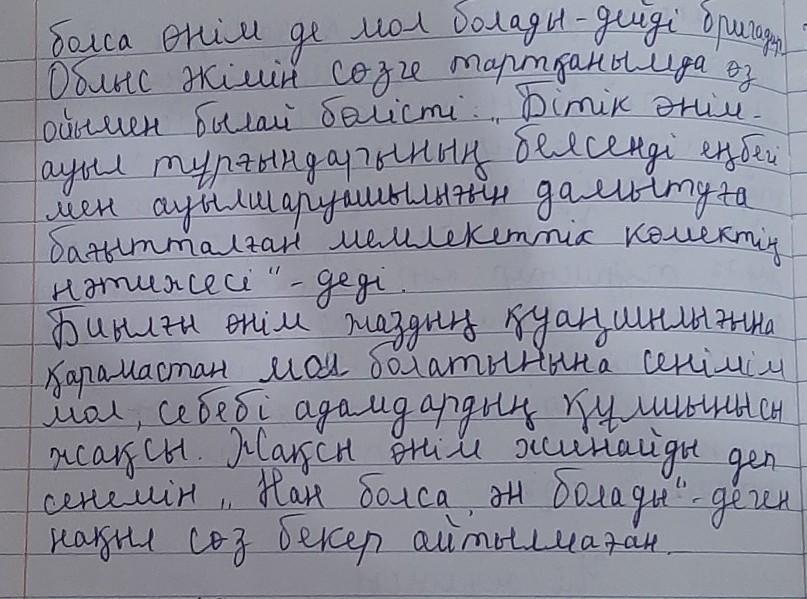 болса өнім де мол болады - дейді бригадир.
Облыс әкімін сөзге тартқанымда өз
ойымен былай бөлісті: „Бітік өнім -
ауыл тұрғындарғының белсенді еңбегі
мен ауылшаруашылығын дамытуға
бағытталған мемлекеттік көмектің
нәтижесі" - деді.
Биылғы өнім жаздың қуаңшылығына
қарамастан мол болатынына сенімім
мол, себебі адамдардың құлшынысы
жақсы. Жақсы өнім жинайды деп
сенемін „Нан болса, ән болады" - деген
нақыл сөз бекер айтылмаған.